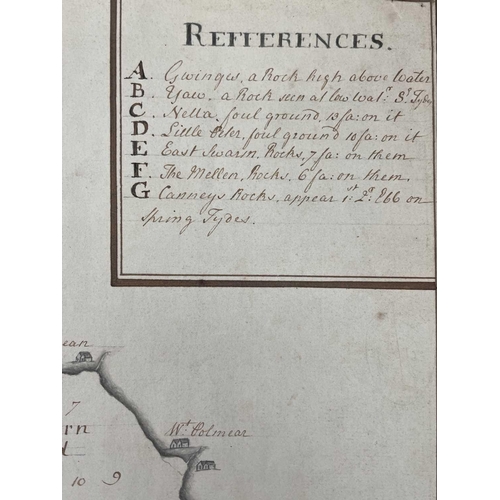 REFFERENCES.
A. Gwinges, a Rock high above Water
B. Yaw, a Rock seen at low wat.r Sp Tydes
C. Nella, foul ground, 10 fa: on it
D. Little Oter, foul ground 10 fa: on it
E East Swarsn, Rocks, 7 fa: on them
F. The Mellen, Rocks, 6 fa: on them,
G Canneys Rocks, appear 1st 2r: Ebb on
Spring Tydes.
ean
7
Wt Polmear
rn
10 9